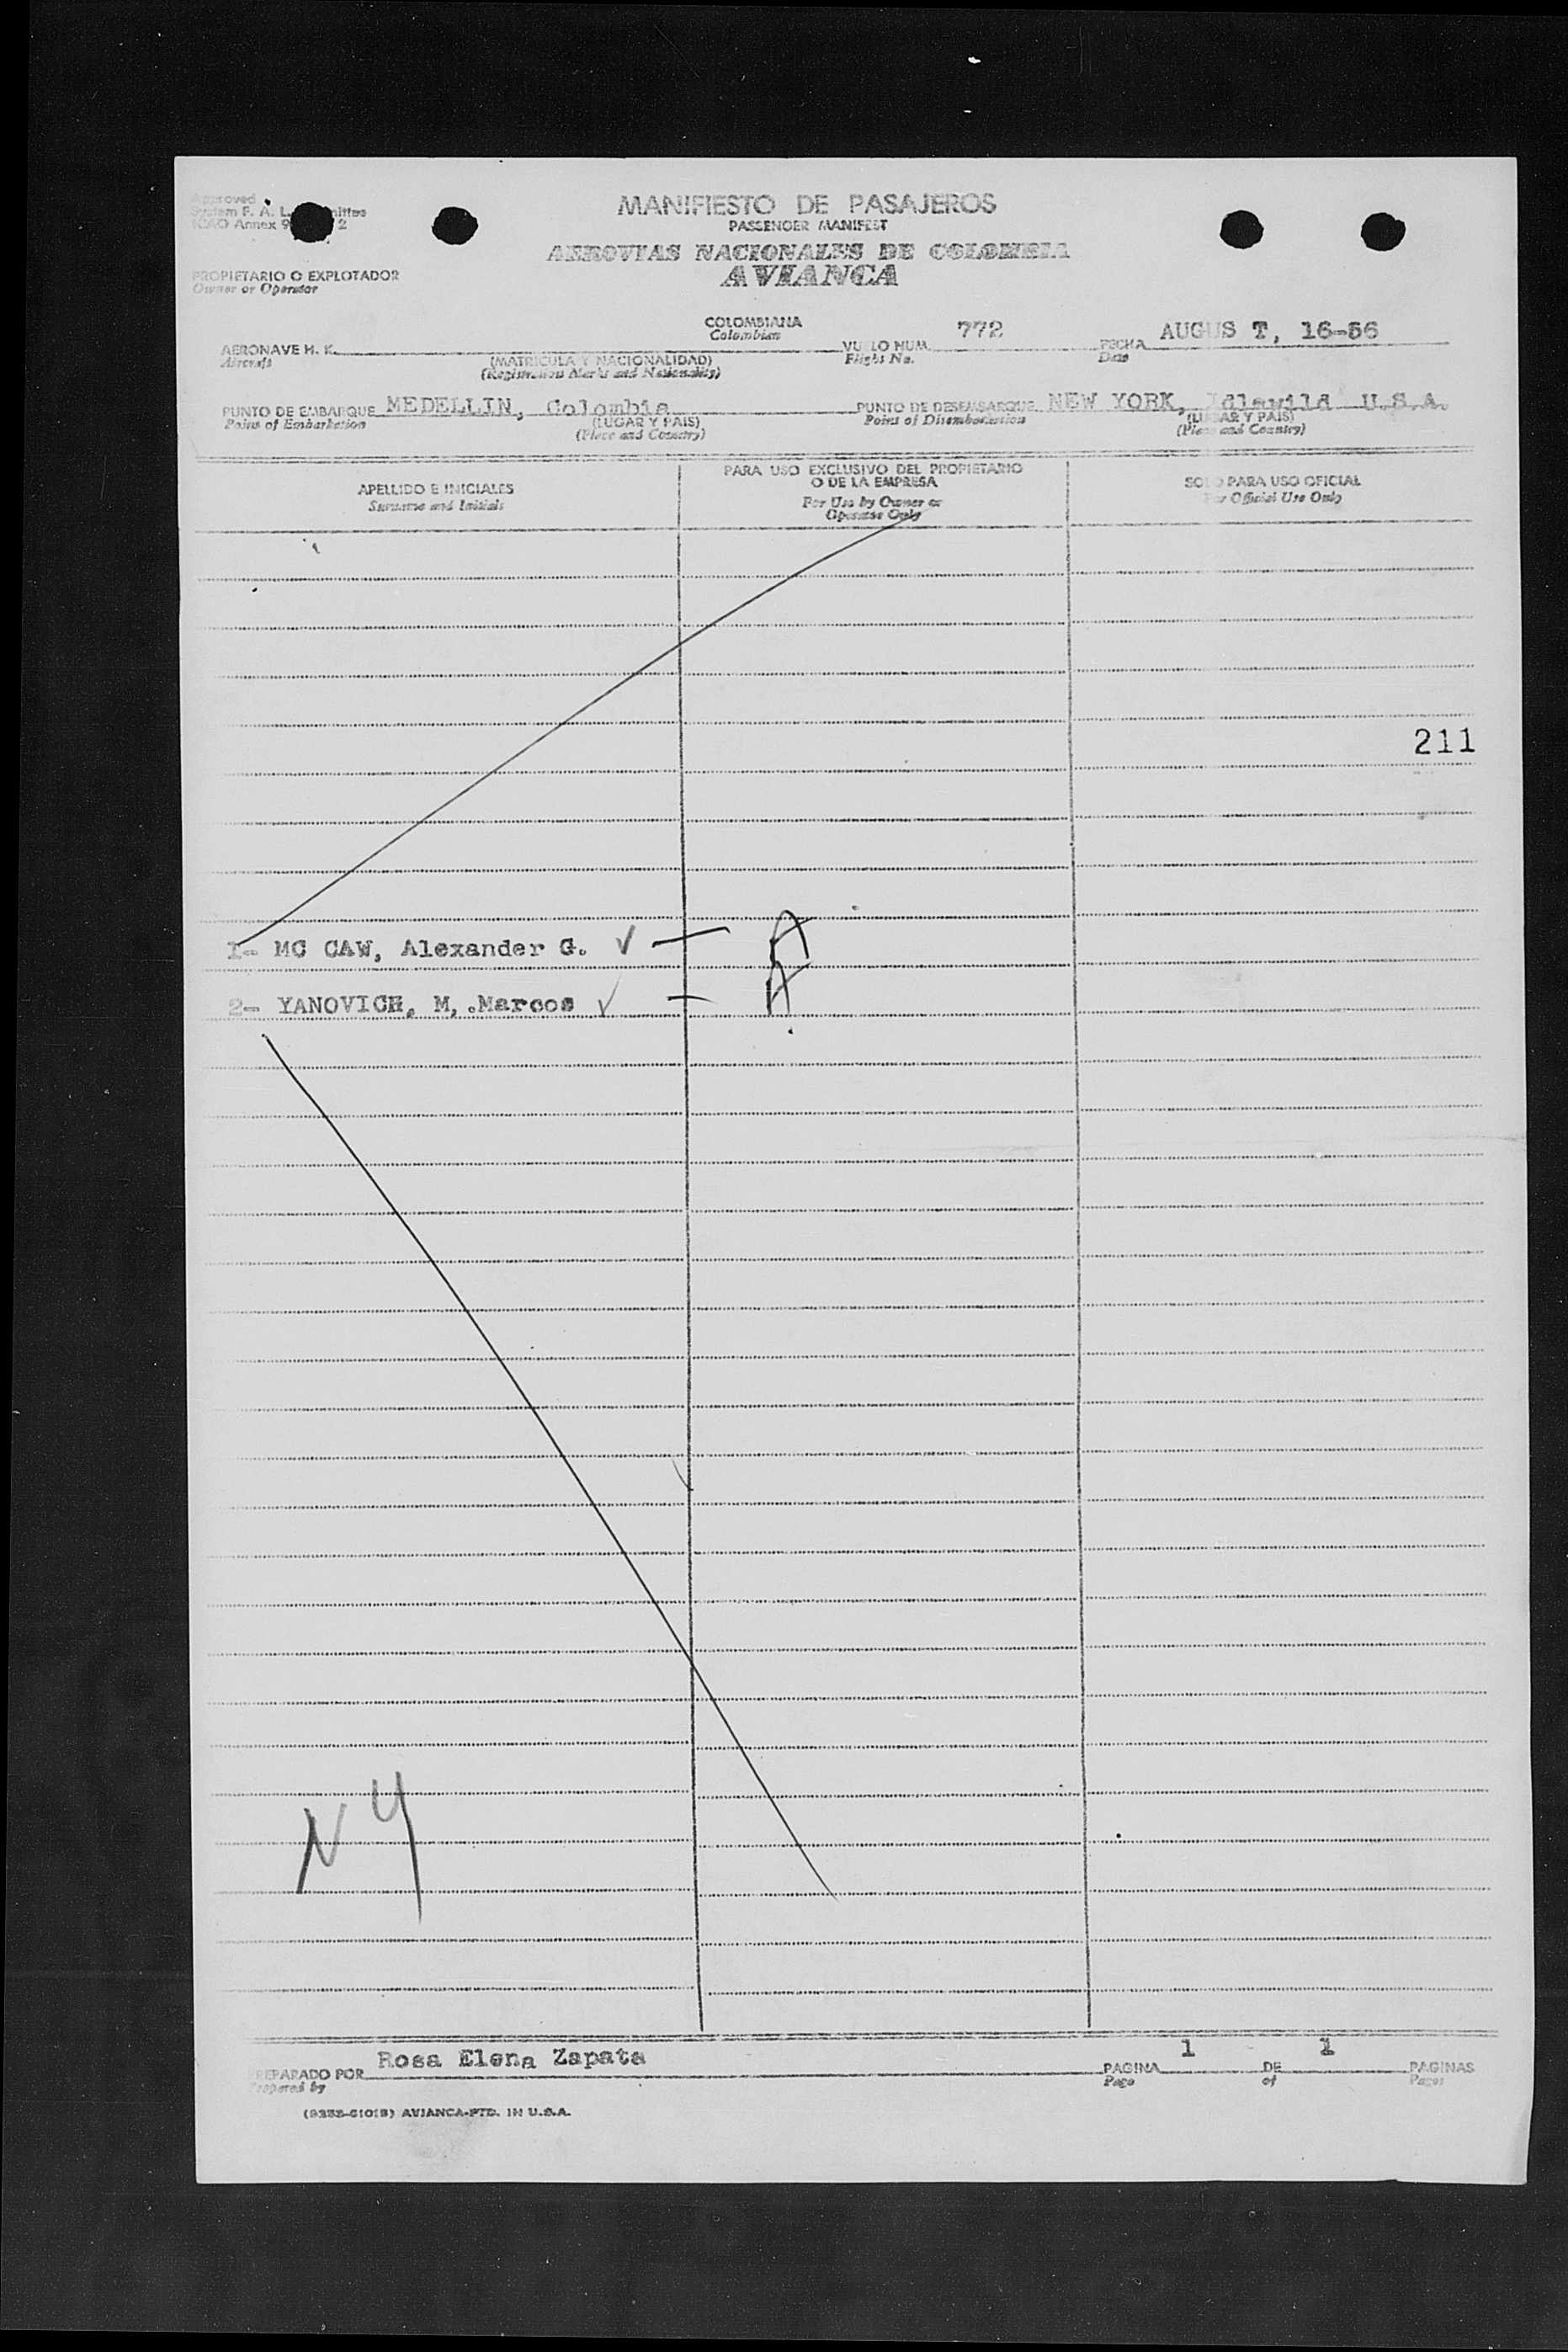 Approved
System F. A. L.
ICAO Annex 9 2
MANIFIESTO DE PASAJEROS
PASSENGER MANIFEST
AEROVIAS NACIONALES DE COLOMBIA
AVIANCA
PROPIETARIO O EXPLOTADOR
Owner or Operator
COLOMBIANA
Colombian
AERONAVE H. K.
Aircraft
(MATRICULA Y NACIONALIDAD)
(Registration Marks and Nationality)
VUELO NUM. 772
Flight No.
FECHA AUGUS T, 16-56
Date
PUNTO DE EMBARQUE MEDELLIN, Colombia
Point of Embarkation
(LUGAR Y PAIS)
(Place and Country)
PUNTO DE DESEMBARQUE NEW YORK, Idlewild U.S.A.
Point of Disembarkation
(LUGAR Y PAIS)
(Place and Country)
APELLIDO E INICIALES
Surname and Initials
PARA USO EXCLUSIVO DEL PROPIETARIO
O DE LA EMPRESA
For Use by Owner or
Operator Only
SOLO PARA USO OFICIAL
For Official Use Only
211
1- MC CAW, Alexander G. ✓ — A
2- YANOVICH, M,.Marcos ✓ — A
NY
PREPARADO POR Rosa Elena Zapata
Prepared by
PAGINA 1 DE 1 PAGINAS
Page of Pages
AVIANCA-PTD. IN U.S.A.